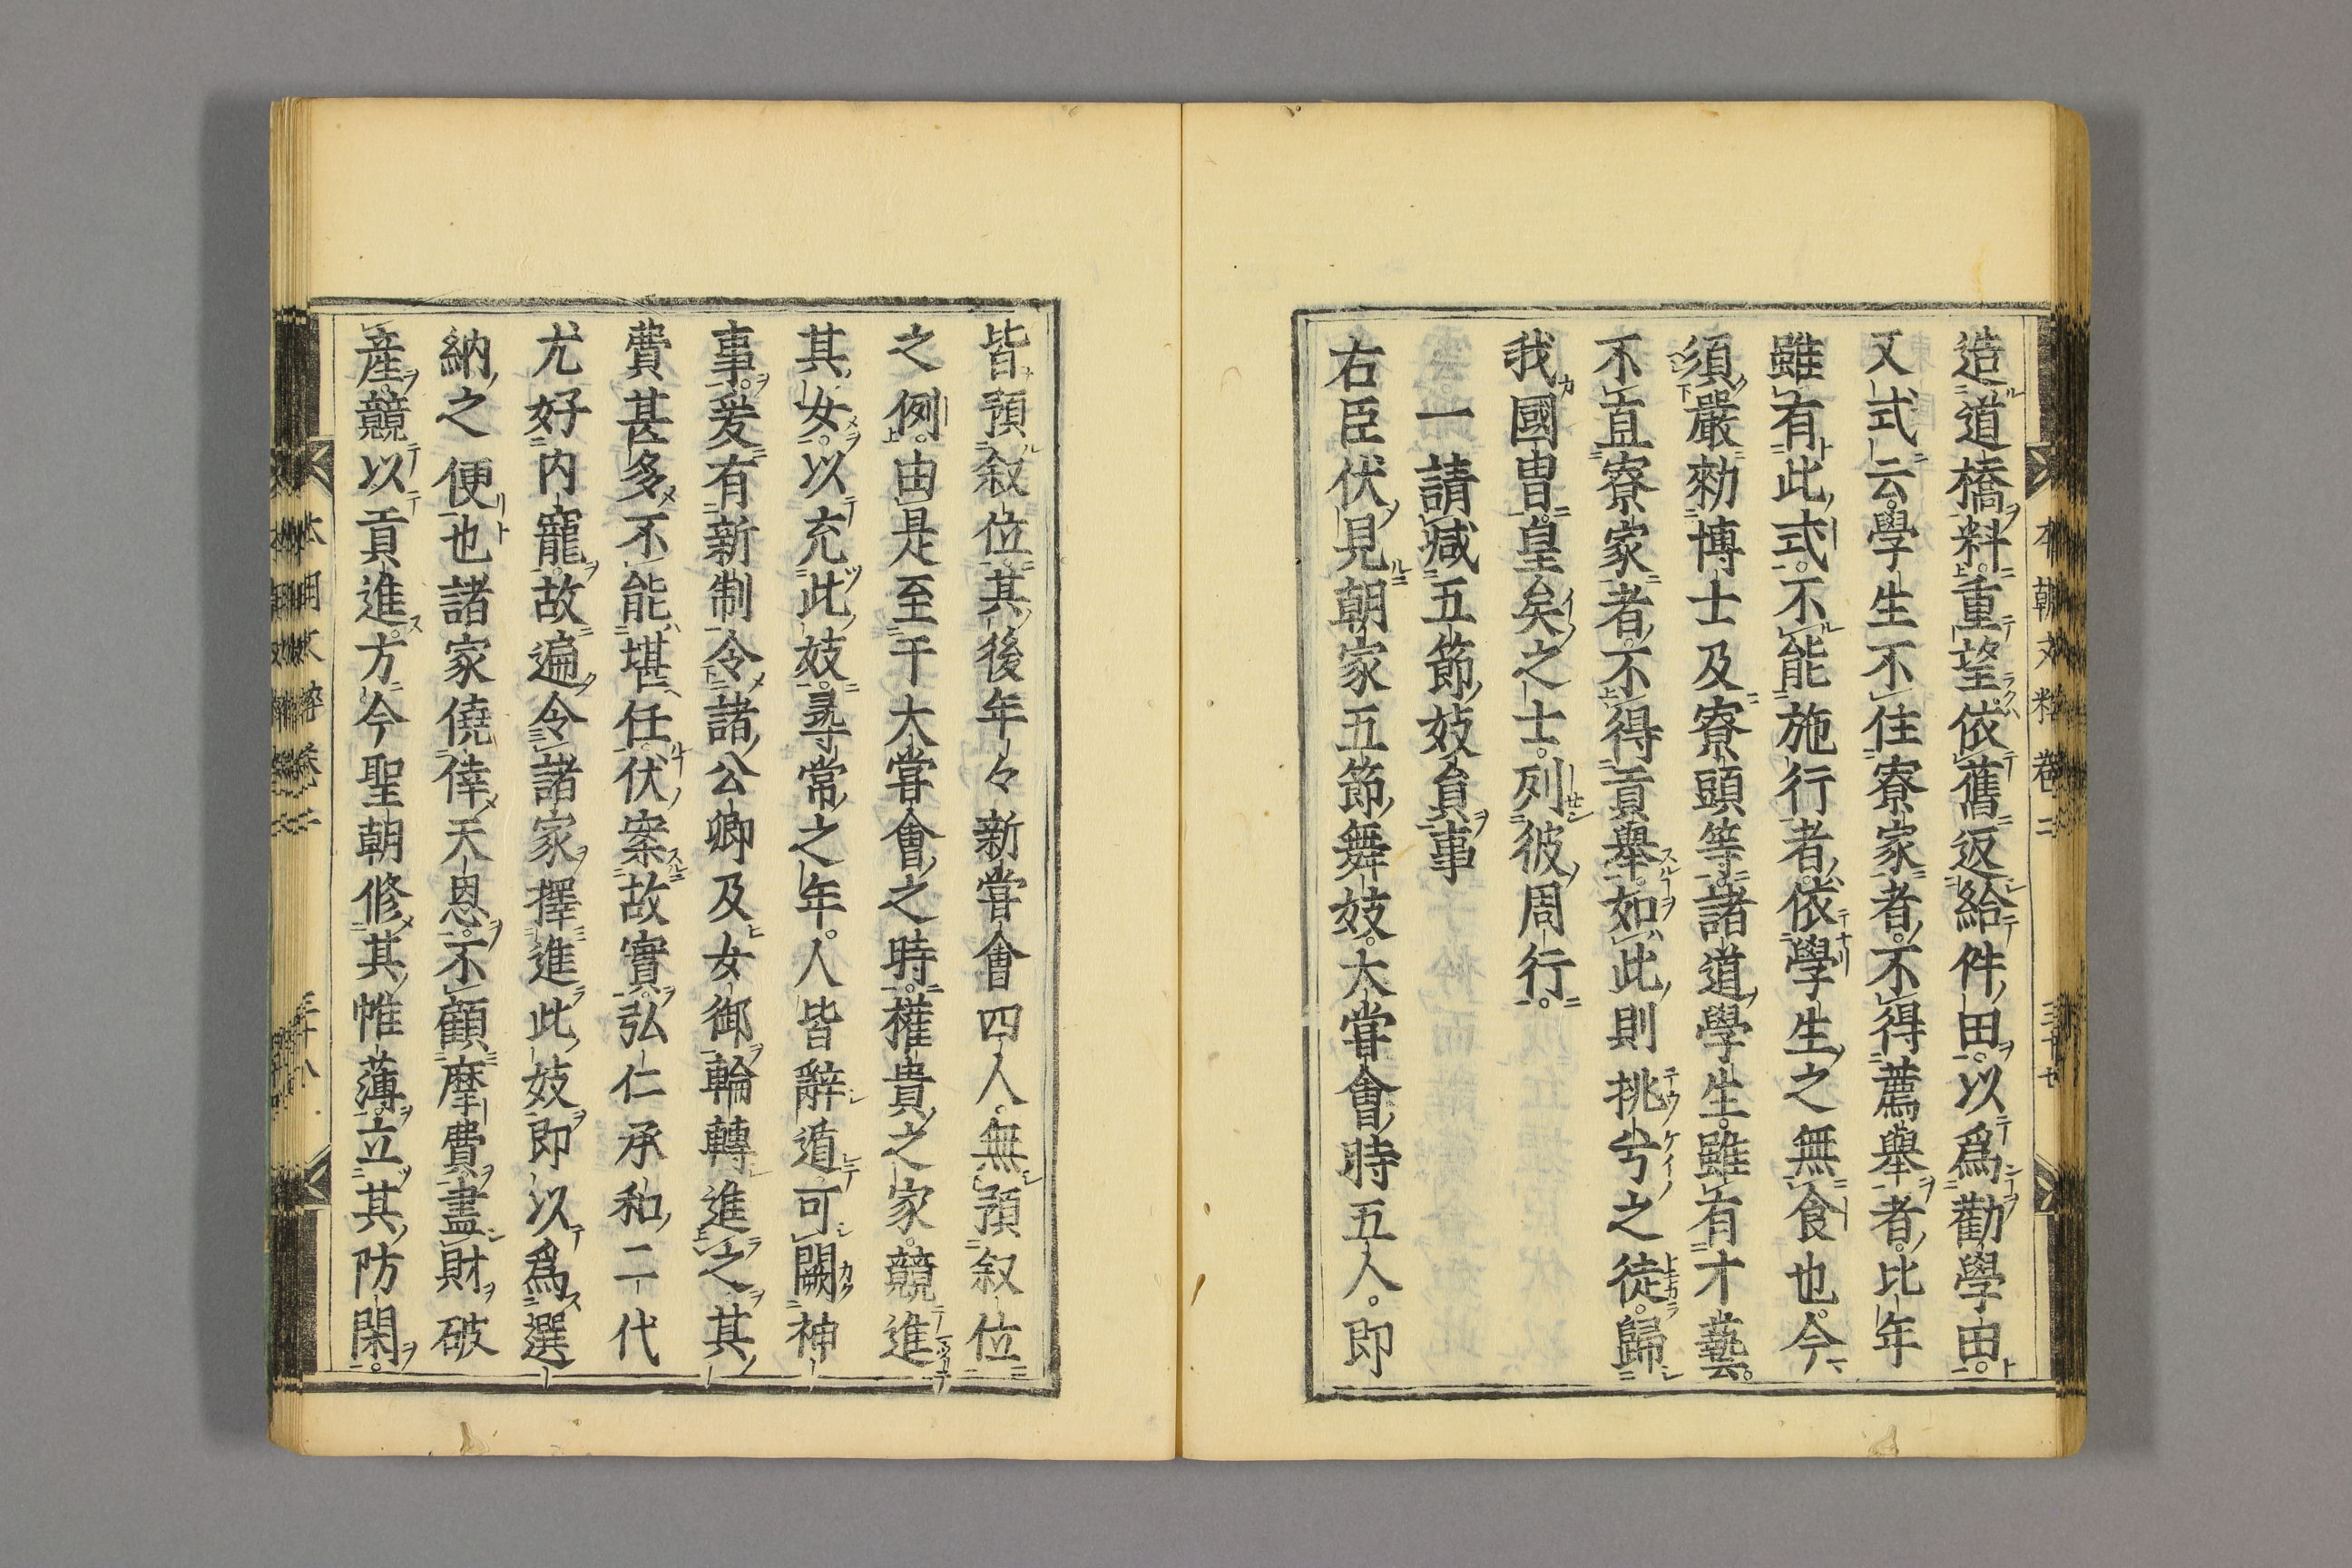 造道橋料。重望。依舊返給件田。以爲勸學田。
又式云。學生不住寮家者。不得薦擧者。比年
雖有此式。不能施行者。依學生之無食也。今
須嚴勑博士及寮頭等。諸道學生。雖有才藝。
不直寮家者。不得貢擧。如此則挑兮之徒。歸
我國冑。皇矣之士。列彼周行。
一請減五節妓員事
右臣伏見朝家五節舞妓。大甞會時五人。即
皆預叙位。其後年々新甞會四人。無預叙位
之例。由是至干大甞會之時。權貴之家。競進
其女。以充此妓。尋常之年。人皆辭遁。可闕神
事。爰有新制。令諸公卿及女御輪轉進之。其
費甚多。不能堪任。伏案故實。弘仁承和二代
尤好内寵。故遍令諸家擇進此妓。即以爲選
納之便也。諸家僥倖天恩。不顧摩費。盡財破
産。競以貢進。方今聖朝修其帷薄。立其防閑。
本朝文粹卷二
三十七
三十八